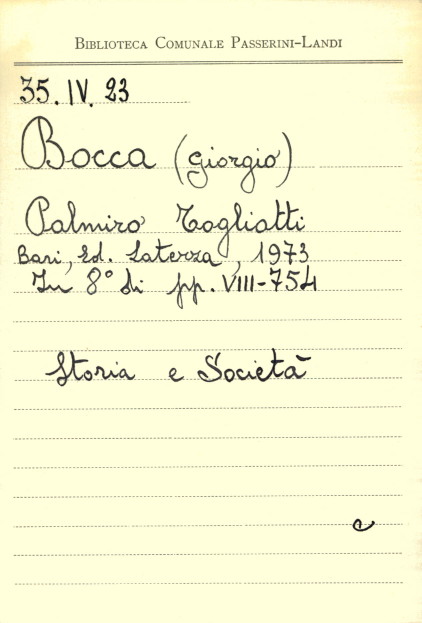 Biblioteca Comunale Passerini-Landi
35.IV.23
Bocca (Giorgio)
Palmiro Togliatti
Bari, Ed. Laterza, 1973
In 8° di pp. VIII-754
Storia e Società
e